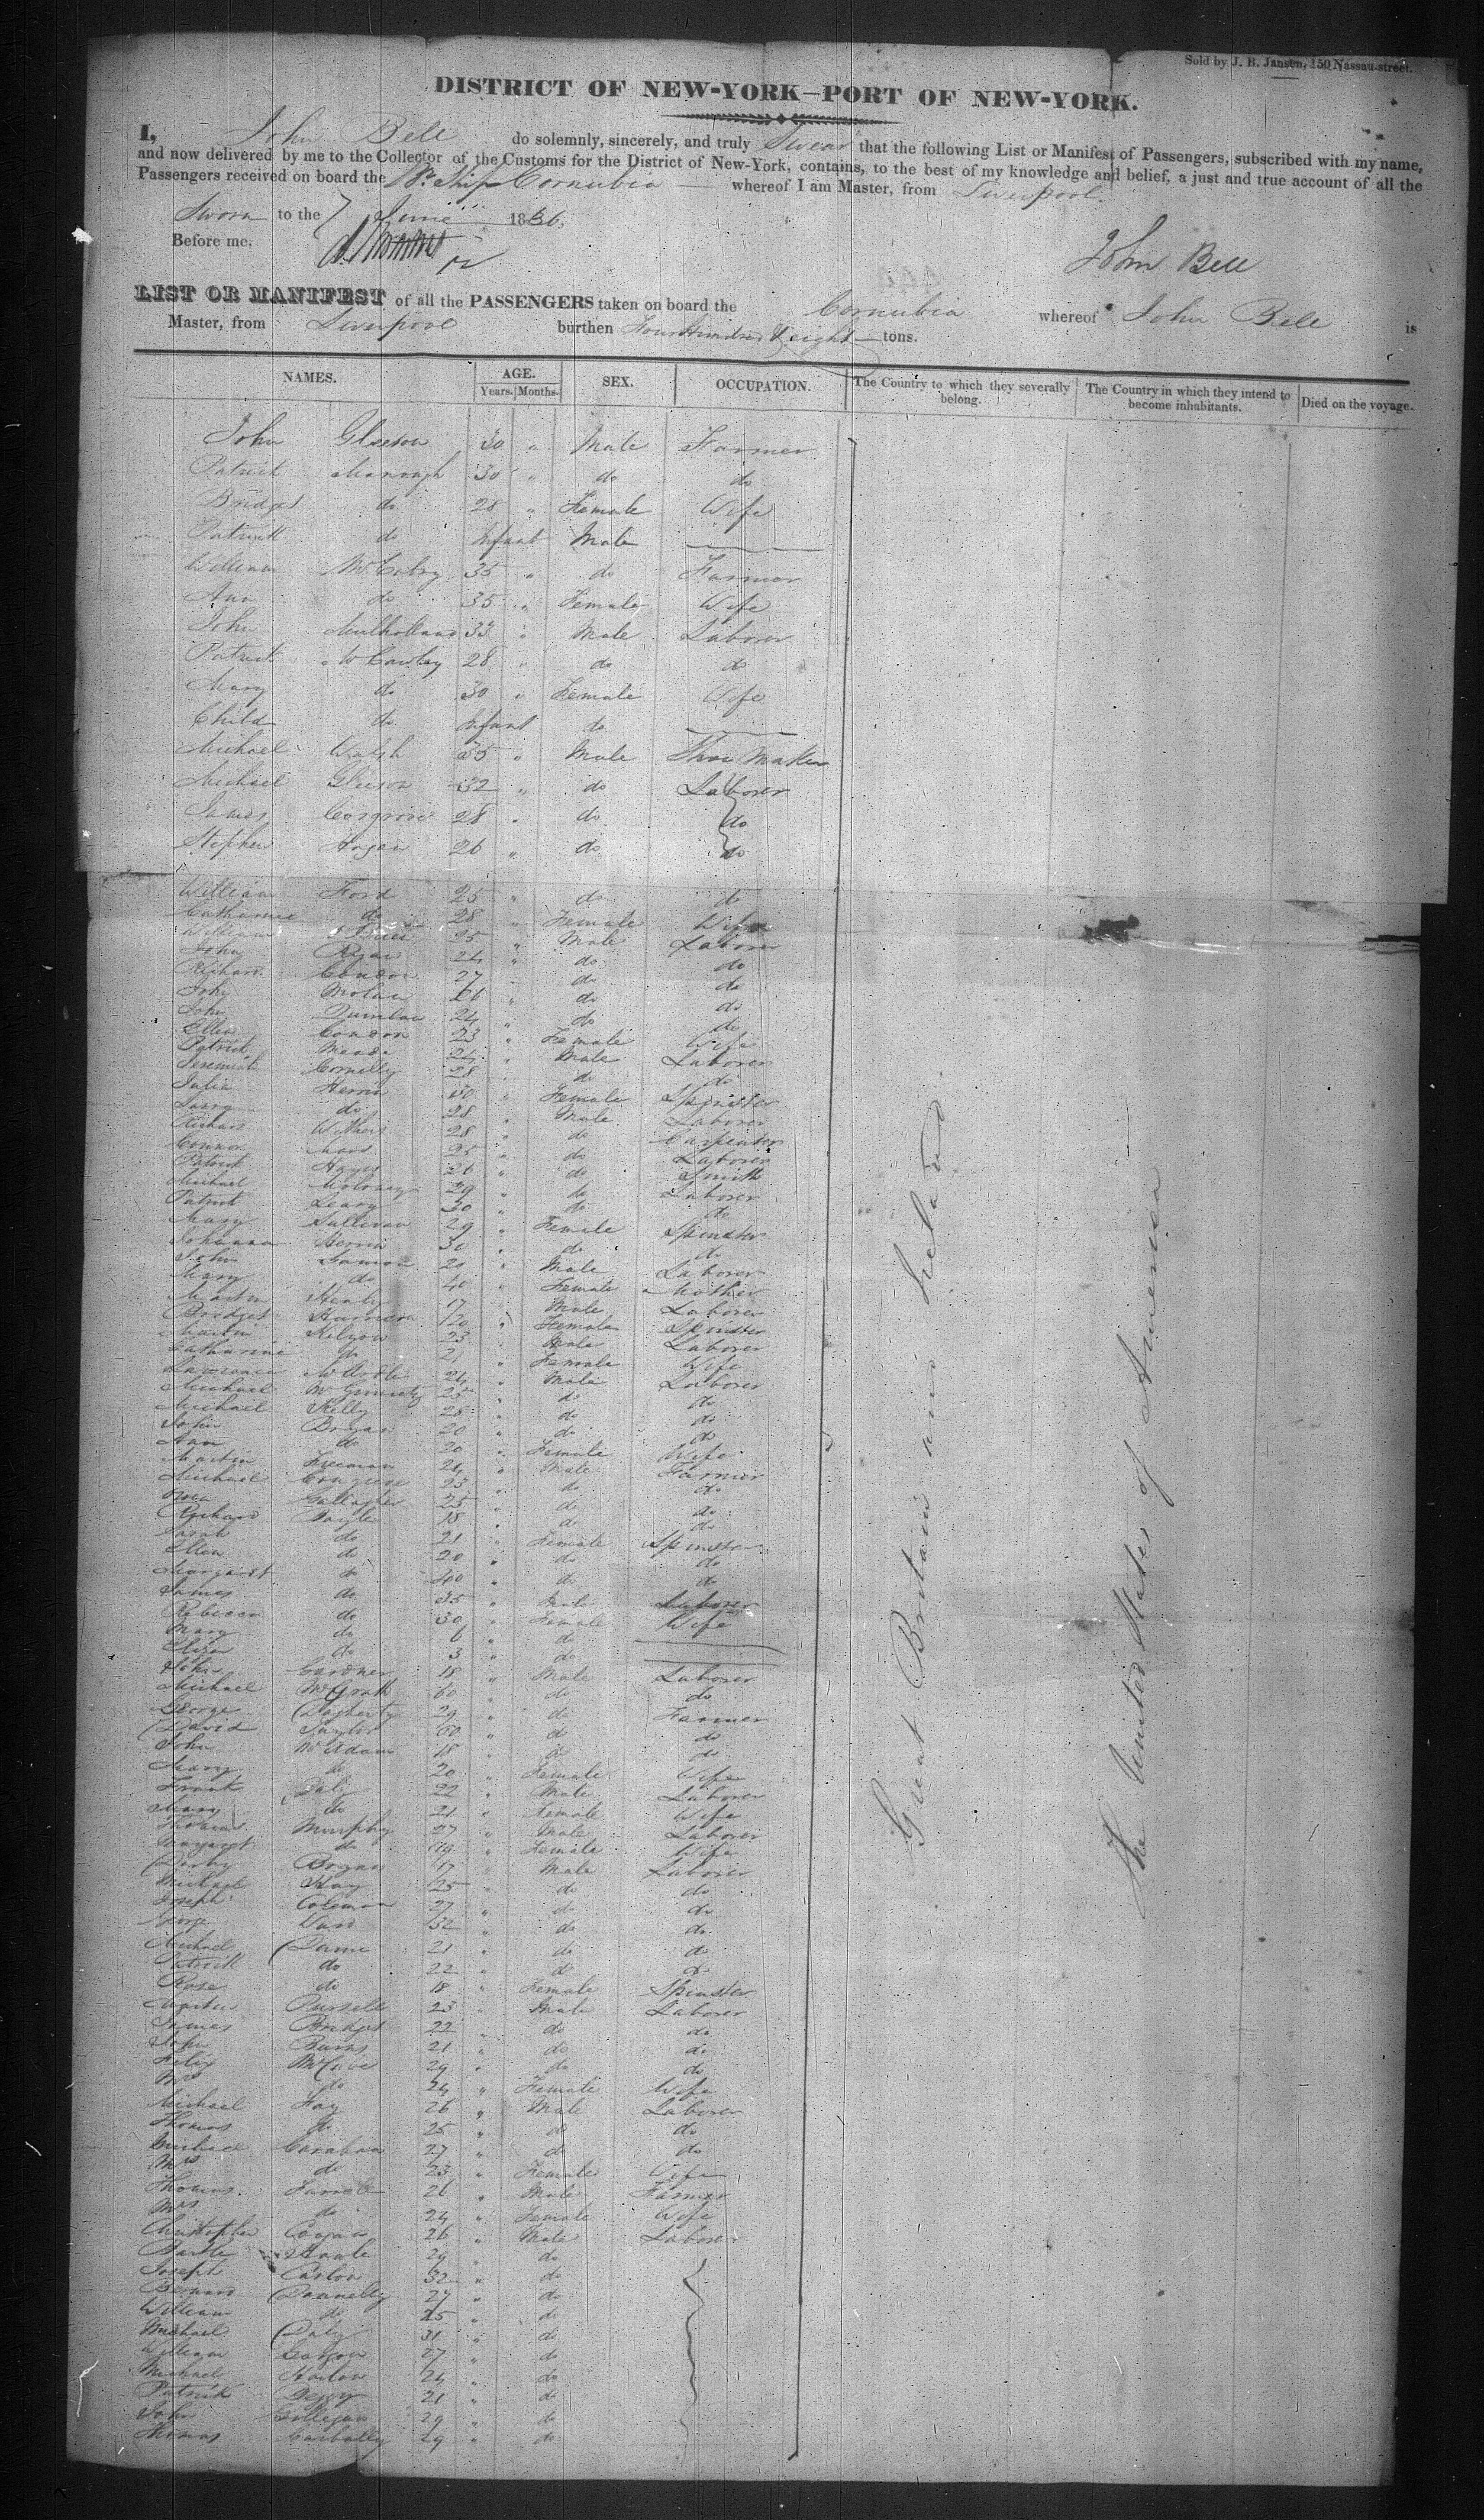 Sold by J. B. Jansen, 150 Nassau-street.
DISTRICT OF NEW-YORK—PORT OF NEW-YORK.
I, John Bell do solemnly, sincerely, and truly Swear that the following List or Manifest of Passengers, subscribed with my name,
and now delivered by me to the Collector of the Customs for the District of New-York, contains, to the best of my knowledge and belief, a just and true account of all the
Passengers received on board the Br. Ship Cornubia whereof I am Master, from Liverpool.
Sworn to the 7 June 1836,
Before me,
John Bell
LIST OR MANIFEST of all the PASSENGERS taken on board the Cornubia whereof John Bell is
Master, from Liverpool burthen Four Hundred & eight tons.
NAMES. AGE. SEX. OCCUPATION. The Country to which they severally belong. The Country in which they intend to become inhabitants. Died on the voyage.
Years. Months.
John Gleeson 30 " Male Farmer
Patrick 30 " do do
Bridget do 28 " Female Wife
Patrick do Infant Male
William 35 " do Farmer
Ann do 35 " Female Wife
John Mulholland 33 " Male Laborer
Patrick McCauley 28 " do do
Mary do 30 " Female Wife
Child do Infant do
Michael Walsh 35 " Male Shoe Maker
Michael Gleeson 32 " do Laborer
James Cosgrove 28 " do do
Stephen Hogan 26 " do do
William Ford 25 " do do
Catharine do 28 " Female Wife
William 25 " Male Laborer
John Ryan 24 " do do
Richard Condon 27 " do do
John Nolan 26 " do do
John Quinlan 24 " do do
Ellen Condon 23 " Female Wife
Patrick Meade 24 " Male Laborer
Jeremiah Connelly 28 " do do
Julia 30 " Female Spinster
do 28 " Male Laborer
Richard Withers 28 " do Carpenter
Connor 25 " do Laborer
Patrick Hayes 26 " do Smith
Michael Moloney 29 " do Laborer
Patrick Leary 30 " do do
Mary Sullivan 29 " Female Spinster
Johanna 30 " do do
John 21 " Male Laborer
Mary do 40 " Female Mother
Martin Healy 17 " Male Laborer
Bridget 20 " Female Spinster
Martin 23 " Male Laborer
Catharine do 21 " Female Wife
Lawrence McArdle 24 " Male Laborer
Michael 25 " do do
Michael Kelly 28 " do do
John Bryan 20 " do do
Ann do 20 " Female Wife
Martin Freeman 24 " Male Farmer
Michael 23 " do do
Gallagher 25 " do do
Richard 18 " do do
Sarah do 21 " Female Spinster
Ellen do 20 " do do
Margaret do 40 " do do
James do 35 " Male Laborer
Rebecca do 30 " Female Wife
Mary do 6 " do
Eliza do 3 " do
John Gardner 18 " Male Laborer
Michael McGrath 60 " do do
George Dogherty 29 " do Farmer
David Taylor 60 " do do
John McAdam 18 " do do
Mary do 20 " Female Wife
Frank Daly 22 " Male Laborer
Mary do 21 " Female Wife
Thomas Murphy 27 " Male Laborer
Margaret do 19 " Female Wife
Darby Bryan 47 " Male Laborer
Michael 25 " do do
Joseph Coleman 27 " do do
George Ward 32 " do do
Michael Dunne 21 " do do
Patrick do 22 " do do
Rose do 18 " Female Spinster
Pursell 23 " Male Laborer
James Bridget 22 " do do
John Burns 21 " do do
Felix McCabe 29 " do do
Mrs do 24 " Female Wife
Michael Fay 26 " Male Laborer
Thomas do 25 " do do
Michael 27 " do do
Mrs do 23 " Female Wife
Thomas 26 " Male Farmer
Mrs do 24 " Female Wife
Christopher Cogan 26 " Male Laborer
29 " do
Joseph Carlon 32 " do
Bernard Donnelly 27 " do
William do 25 " do
Michael Daly 31 " do
William 27 " do
Michael 24 " do
Patrick 21 " do
John Gillegan 29 " do
Thomas 29 " do
Great Britain and Ireland
The United States of America